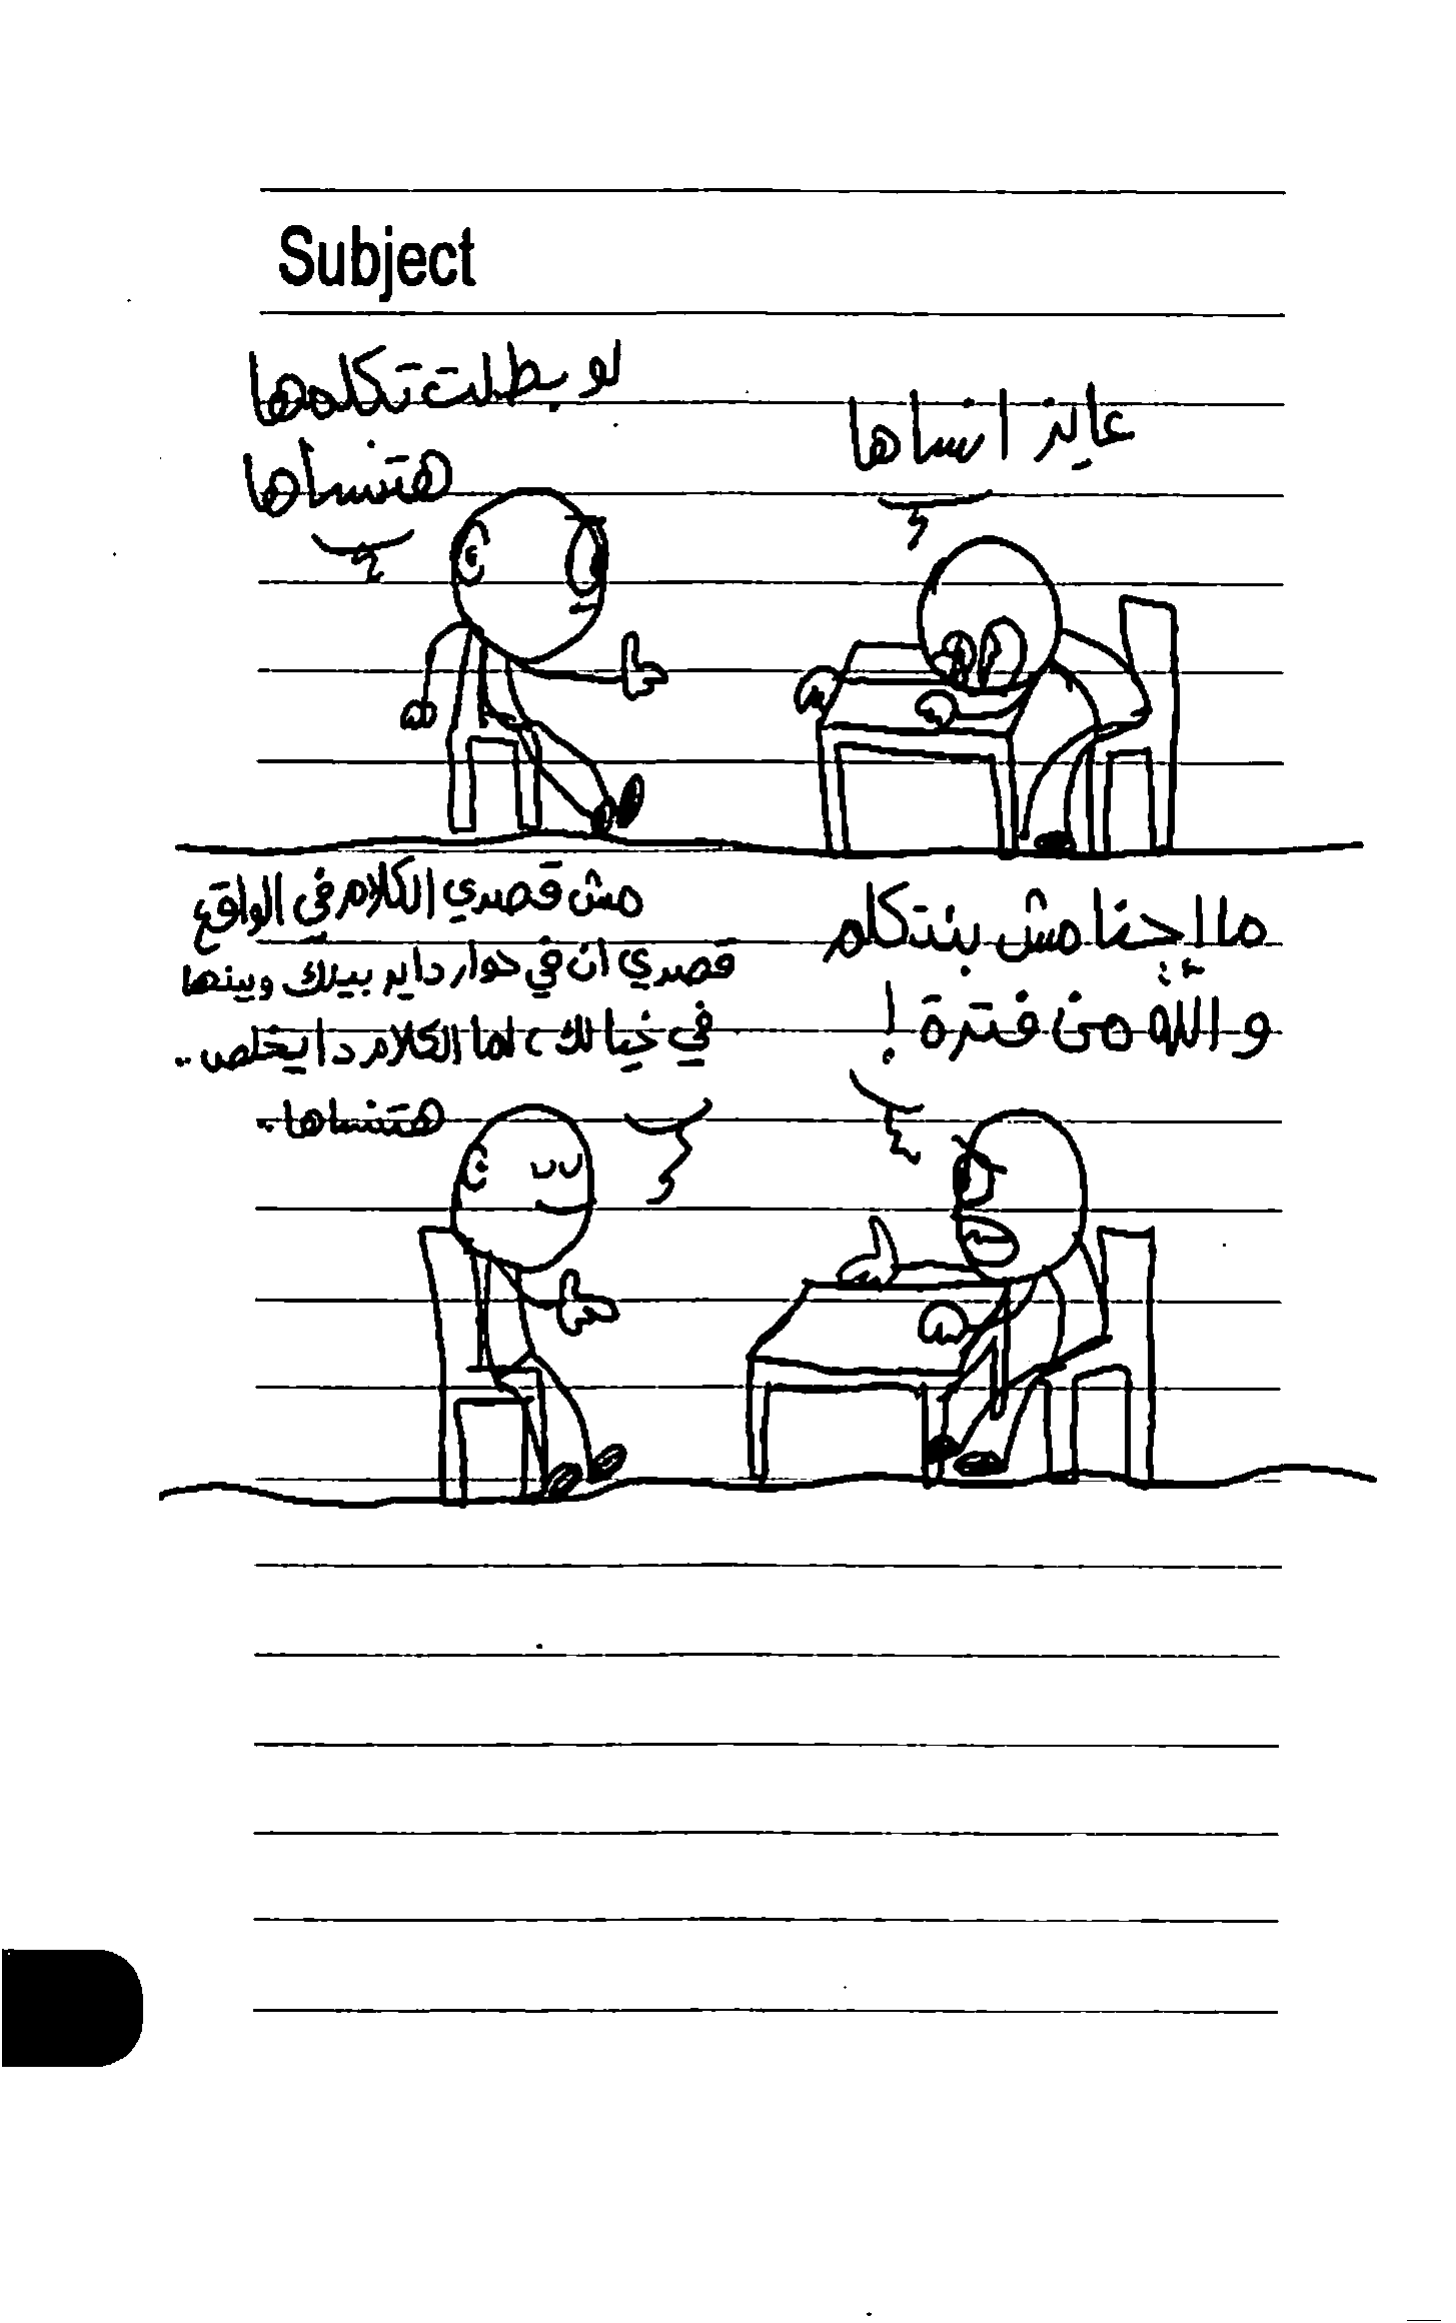 Subject
عايز انساها
لو بطلت تكلمها
هتنساها
ما إحنا مش بنتكلم
والله من فترة !
مش قصدي الكلام في الواقع
قصدي ان في حوار داير بينك وبينها
في خيالك، لما الكلام دا يخلص..
هتنساها..